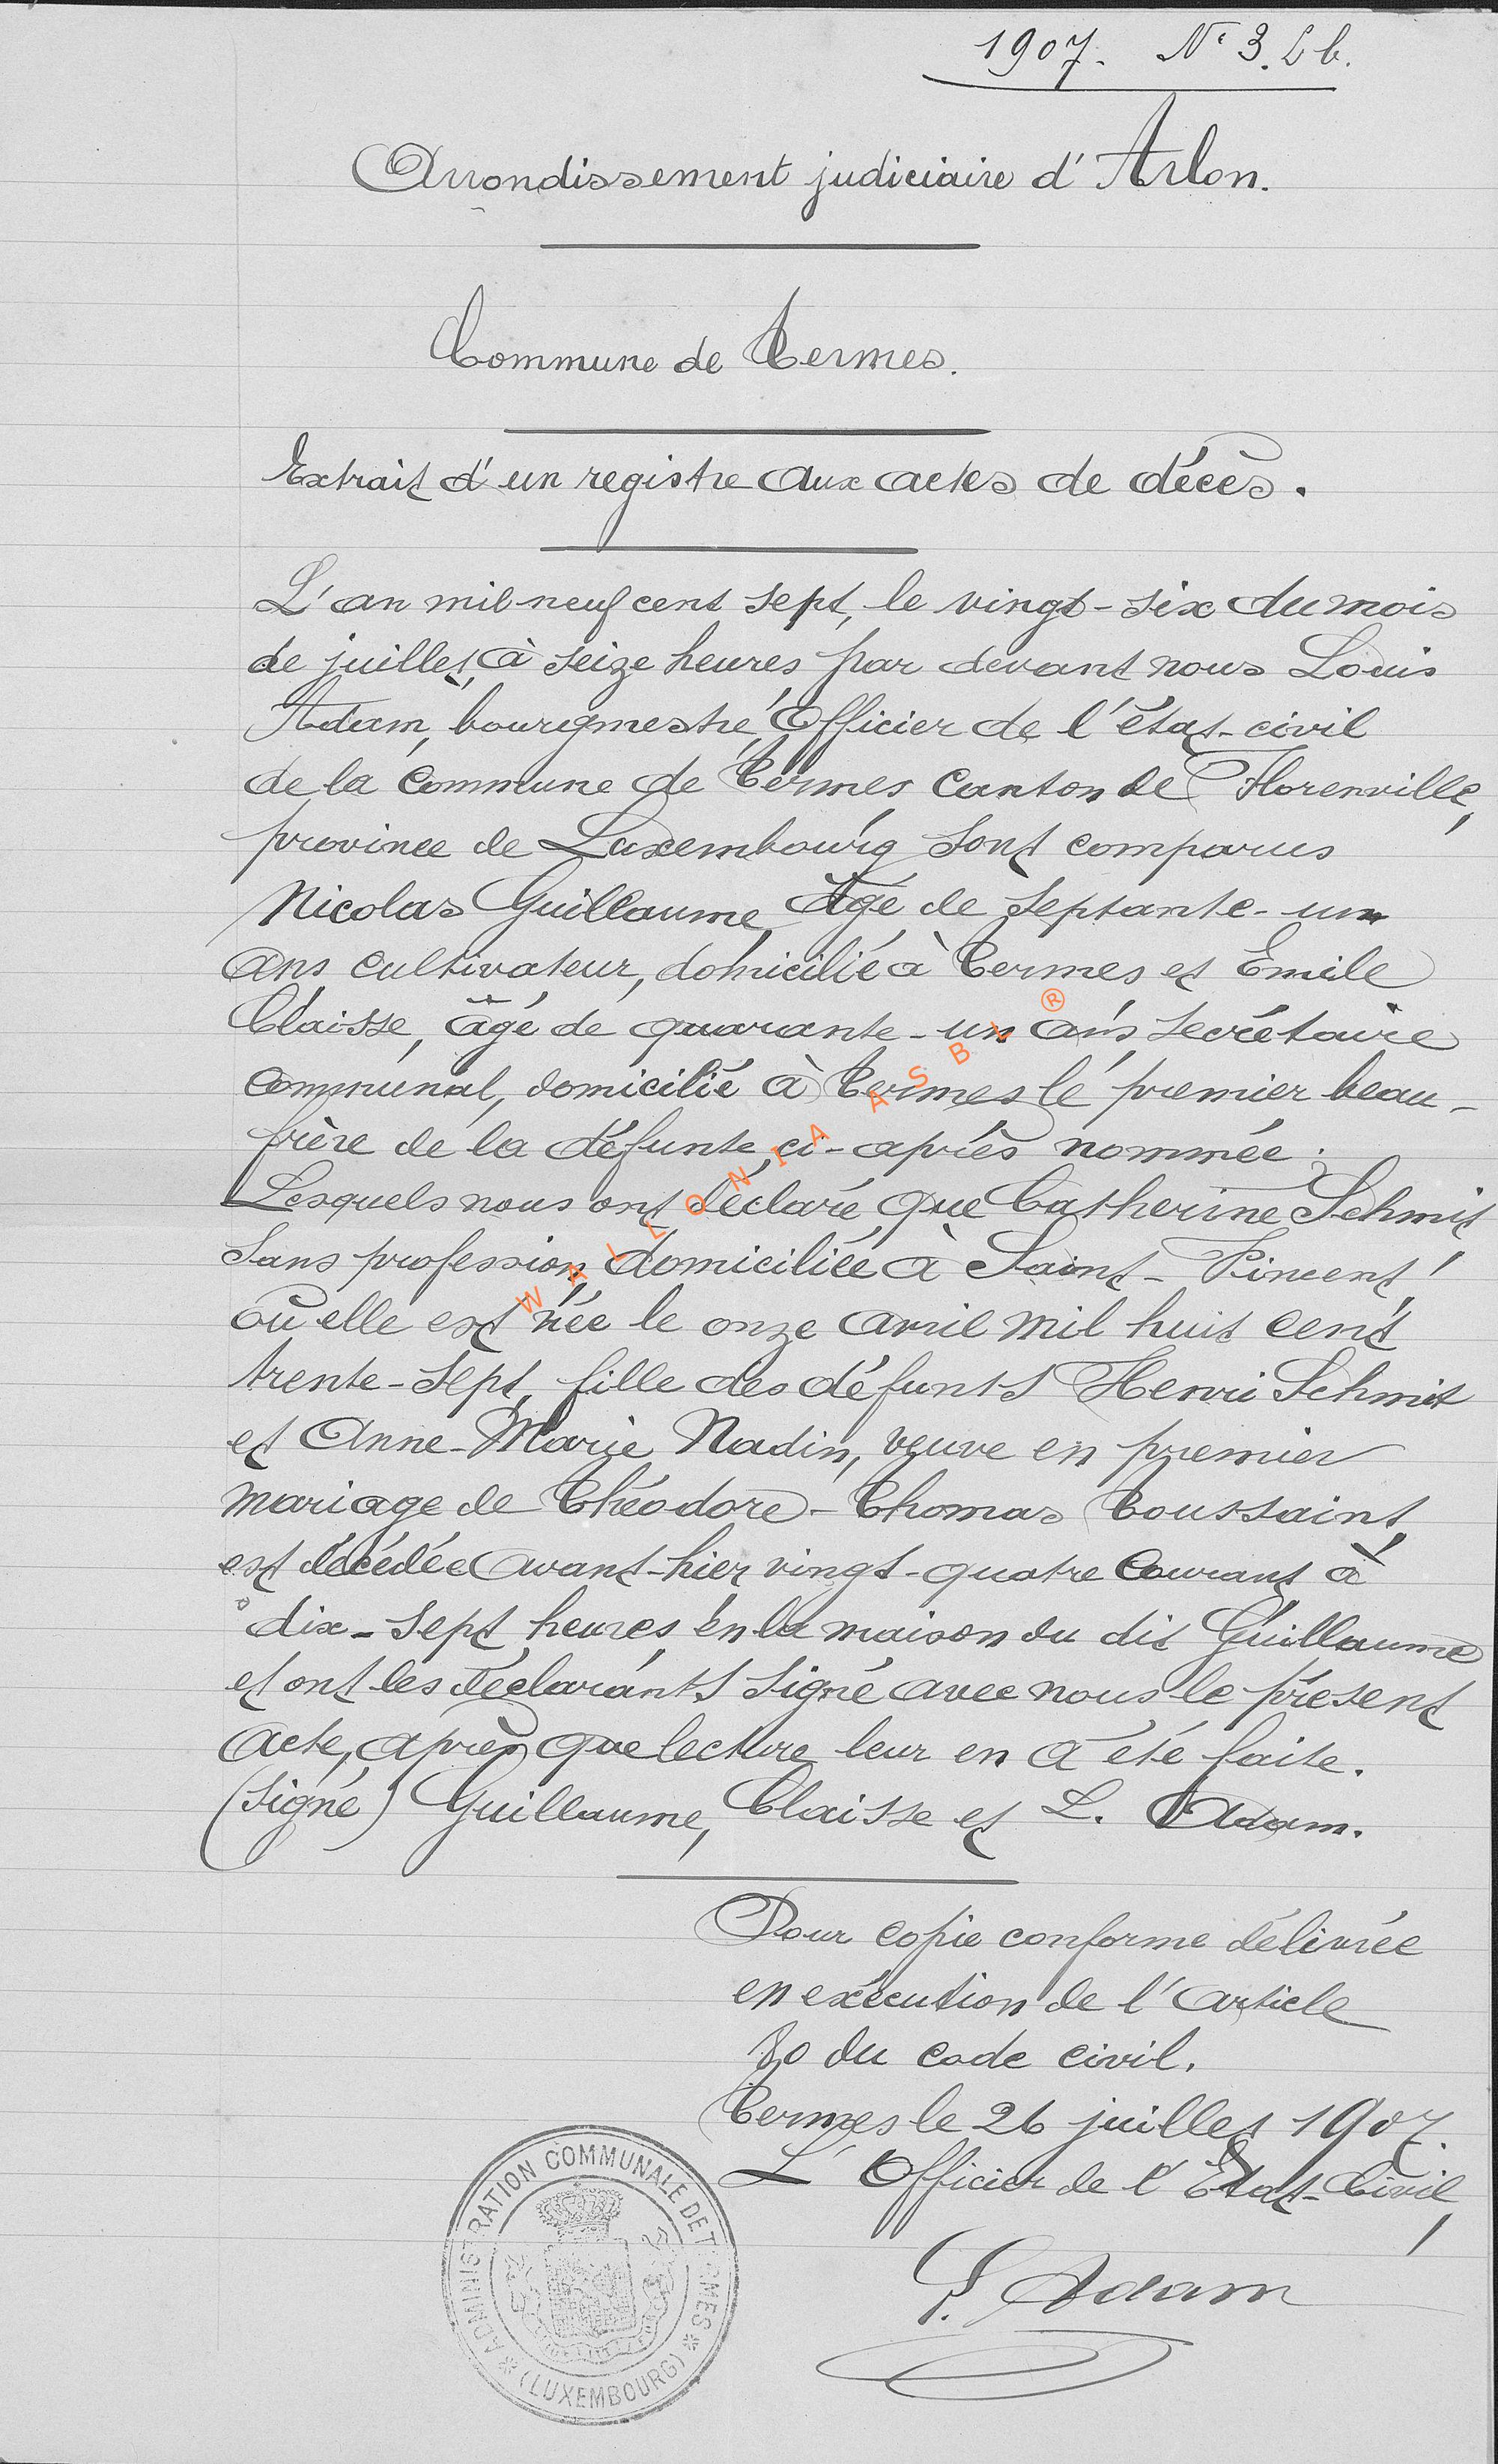 1907. N° 3. Lb.
Arrondissement judiciaire d'Arlon.
Commune de Termes.
Extrait d'un registre aux actes de décès.
L'an mil neuf cent sept, le vingt-six du mois
de juillet, à seize heures par devant nous Louis
Adam, bourgmestre, Officier de l'état-civil
de la commune de Termes canton de Florenville,
province de Luxembourg sont comparus
Nicolas Guillaume, âgé de septante-un
ans, cultivateur, domicilié à Termes et Emile
Claisse, âgé de quarante-un ans, secrétaire
communal, domicilié à Termes le premier beau-
frère de la défunte ci-après nommée ;
Lesquels nous ont déclaré que Catherine Schmit
sans profession, domiciliée à Saint-Vincent,
où elle est née le onze avril mil huit cent
trente-sept, fille des défunts Henri Schmit
et Anne-Marie Nadin, veuve en premier
mariage de Théodore-Thomas Toussaint,
est décédée avant-hier vingt-quatre courant à
dix-sept heures en la maison du dit Guillaume
et ont les déclarants signé avec nous le présent
acte, après que lecture leur en a été faite.
(signé) Guillaume, Claisse et L. Adam.
Pour copie conforme délivrée
en exécution de l'article
80 du code civil.
Termes le 26 juillet 1907.
L'Officier de l'Etat-Civil,
L. Adam
ADMINISTRATION COMMUNALE DE TERMES
(LUXEMBOURG)
WALLONIA ASBL ®